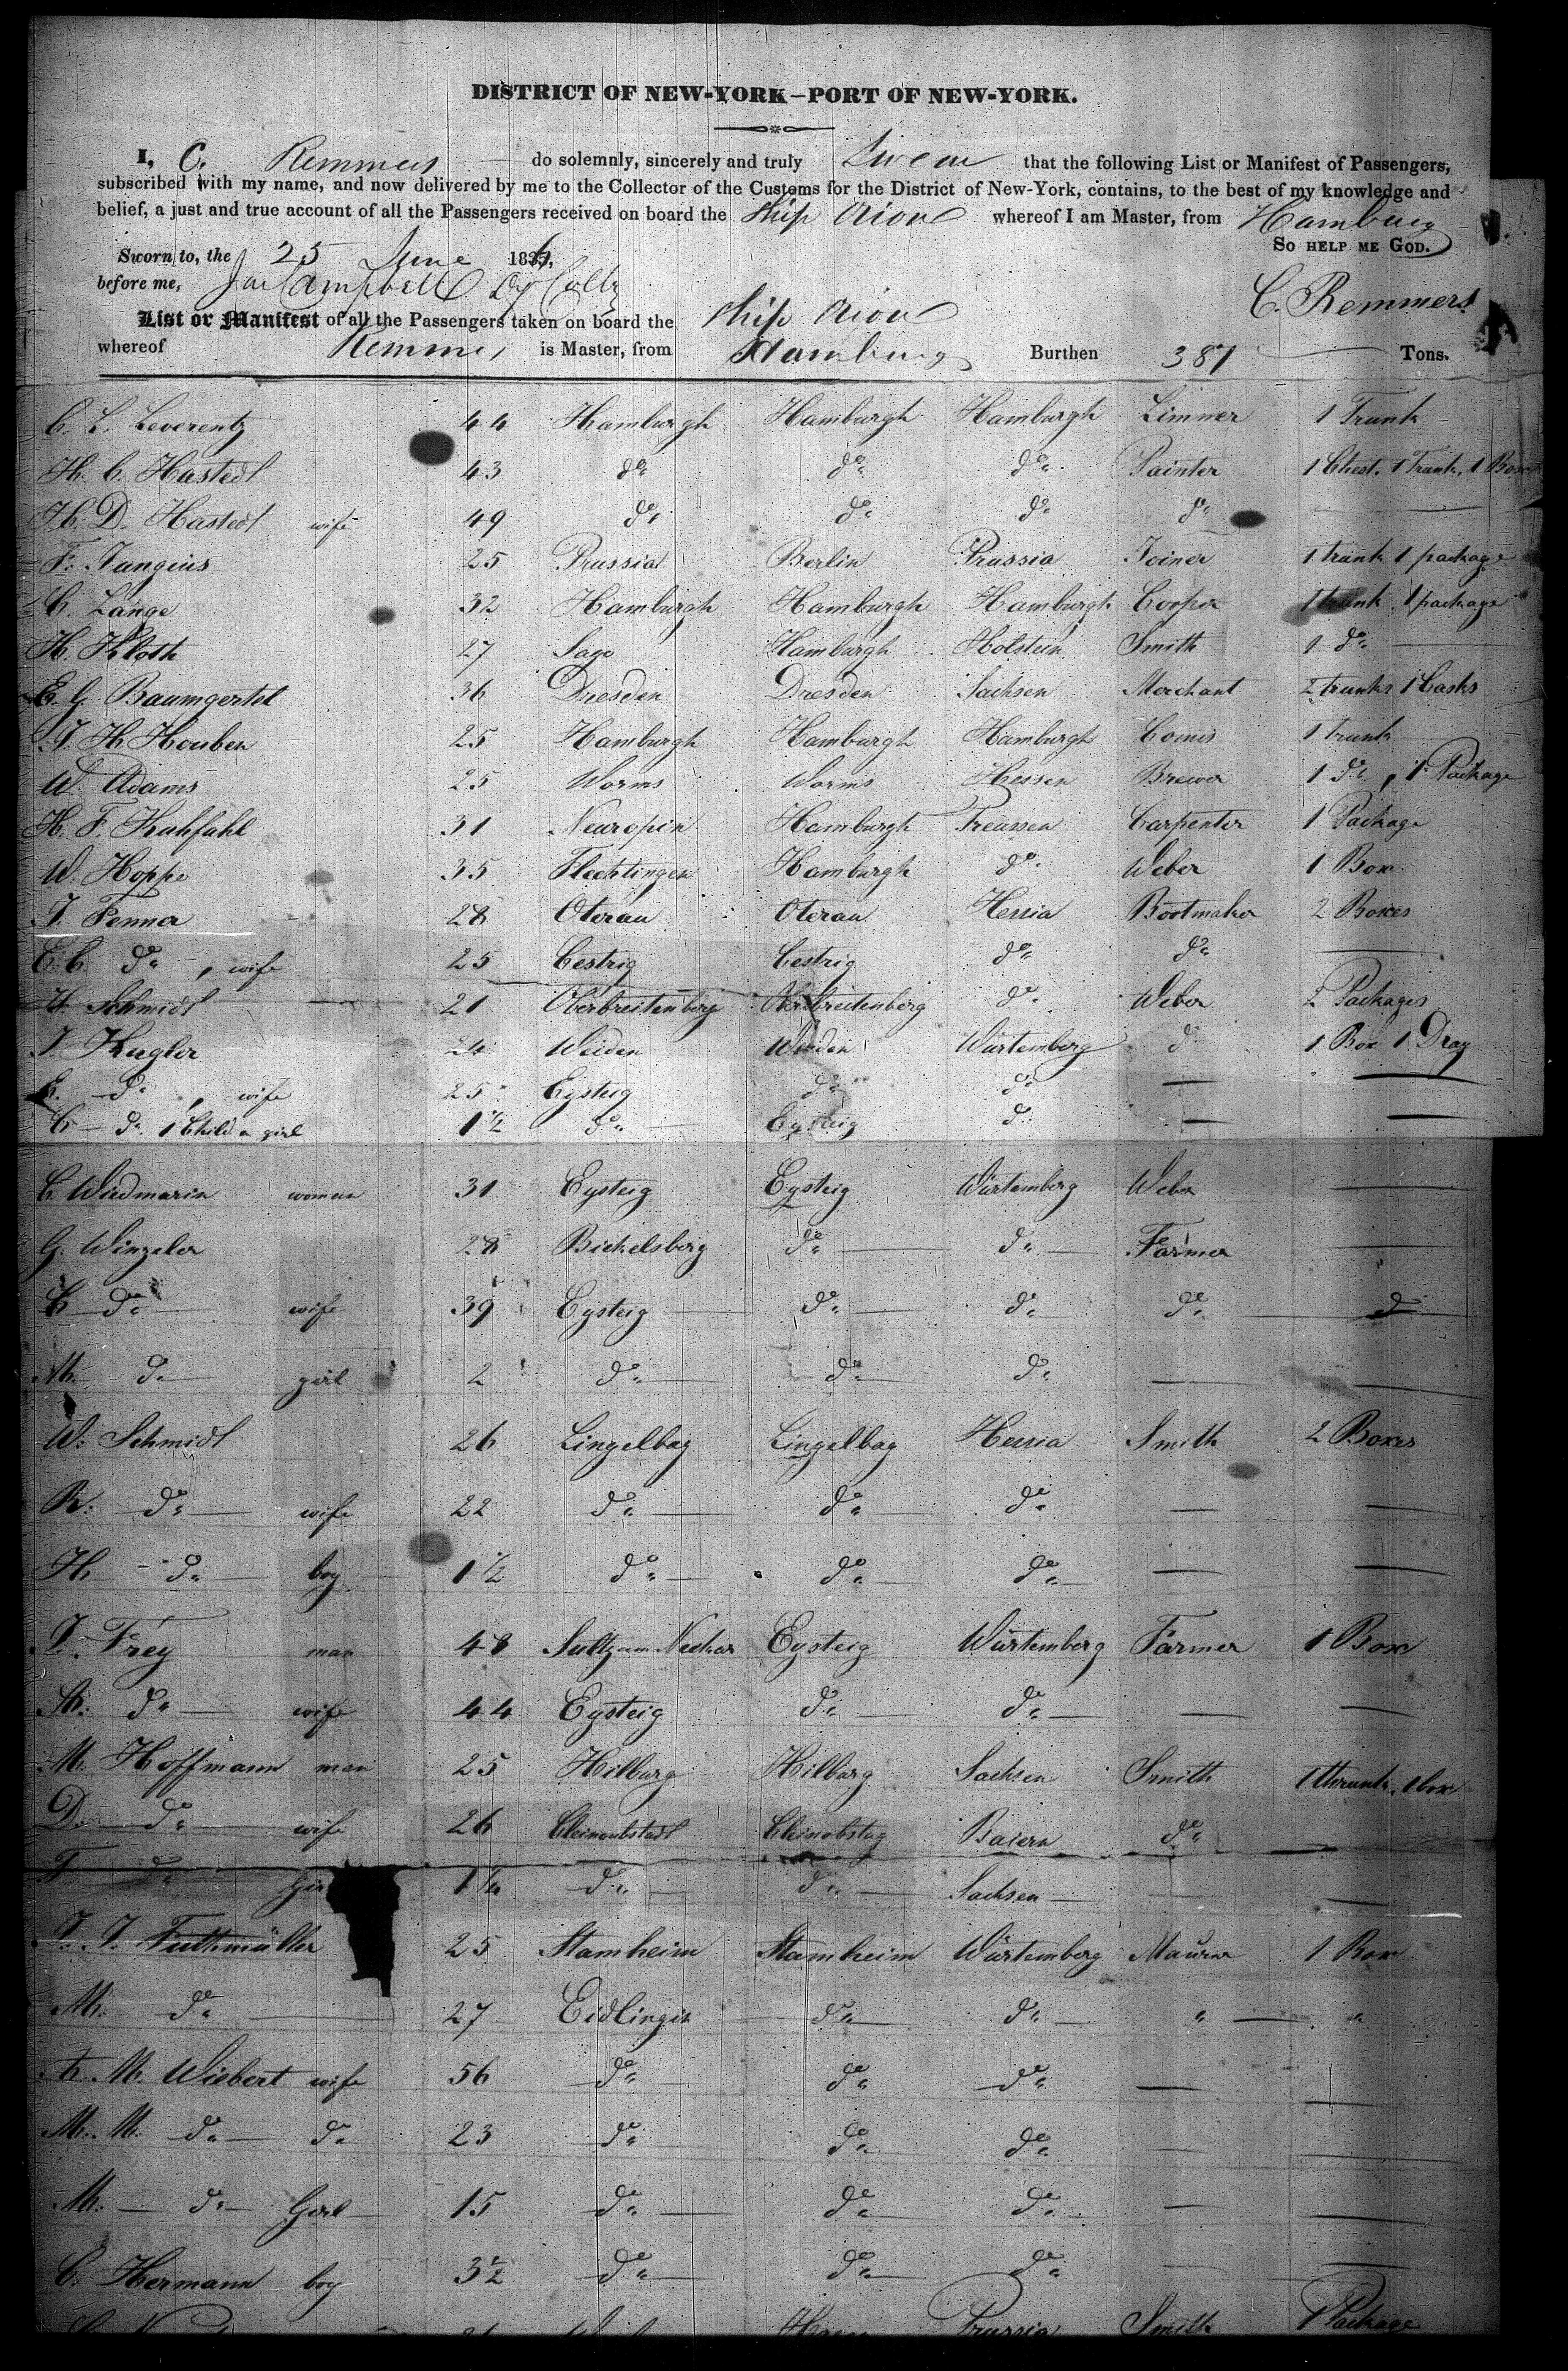 DISTRICT OF NEW-YORK—PORT OF NEW-YORK.
I, C. Remmers do solemnly, sincerely and truly Swear that the following List or Manifest of Passengers,
subscribed with my name, and now delivered by me to the Collector of the Customs for the District of New-York, contains, to the best of my knowledge and
belief, a just and true account of all the Passengers received on board the Ship Orion whereof I am Master, from Hamburg
SO HELP ME GOD.
Sworn to, the 25 June 1836,
before me, Campbell C. Remmers
List or Manifest of all the Passengers taken on board the Ship Orion
whereof Remmers is Master, from Hamburg Burthen 387 Tons.
C. L. Leverentz 44 Hamburgh Hamburgh Hamburgh Limner 1 Trunk
H. C. Hastedt 43 do do do Painter 1 Chest. 1 Trunk, 1 Box
H. D. Hastedt wife 49 do do do do
F. Jungius 25 Prussia Berlin Prussia Joiner 1 trunk 1 package
C. Lange 32 Hamburgh Hamburgh Hamburgh Cooper 1 trunk 1 package
H. Kloth 27 Sage Hamburgh Holstein Smith 1 do
E. G. Baumgertel 36 Dresden Dresden Sachsen Merchant 2 trunks 1 Casks
J. H. Houben 25 Hamburgh Hamburgh Hamburgh Comis 1 trunk
W. Adams 25 Worms Worms Hessen Brewer 1 do, 1 Package
H. F. Kuhfahl 31 Neuropin Hamburgh Preussen Carpenter 1 Package
W. Hoppe 35 Flechtingen Hamburgh do Weber 1 Box
J. Penner 28 Oterau Oterau Hessia Bootmaker 2 Boxes
C. C. do, wife 25 Cestrig Cestrig do do
Schmidt 21 Oberbreitenberg Oberbreitenberg do Weber 2 Packages
J. Kugler 24 Weiden Weiden Würtemberg do 1 Box 1 Dray
E. do, wife 25 Eysteig do do
C do 1 Child a girl 1 1/2 do Eysteig do
C. Widmarin woman 31 Eysteig Eysteig Würtemberg Weber
G. Winzeler 28 Bickelsberg do do Farmer
C do wife 39 Eysteig do do do do
M. do girl 2 do do do
W. Schmidt 26 Lingelbag Lingelbag Hessia Smith 2 Boxes
R. do wife 22 do do do
H. do boy 1 1/2 do do do
J. Frey man 48 Sultz am Neckar Eysteig Würtemberg Farmer 1 Box
A. do wife 44 Eysteig do do
M. Hoffmann man 25 Hilburg Hilburg Sachsen Smith 1 thrunk. 1 box
D. do wife 26 Cleinoubstadt Cleinobstag Baiern do
F. do Girl 1 1/4 do do Sachsen
J. J. Futhmüller 25 Stamheim Stamheim Würtemberg Maurer 1 Box
M. do 27 Eidlingin do do " "
A. M. Wiebert wife 56 do do do
M. M. do do 23 do do do
M. do Girl 15 do do do
C. Hermann boy 3 1/2 do do do
Prussia Smith 1 Package